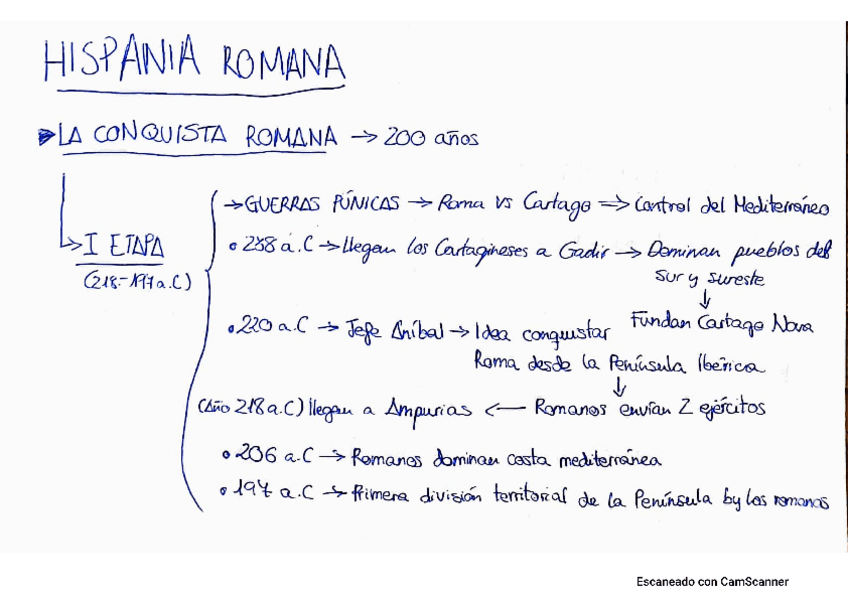 HISPANIA ROMANA
LA CONQUISTA ROMANA → 200 años
→ GUERRAS PÚNICAS → Roma vs Cartago ⇒ Control del Mediterráneo
I ETAPA
(218-197 a.C)
• 238 a.C → llegan los Cartagineses a Gadir → Dominan pueblos del
sur y sureste
↓
Fundan Cartago Nova
• 220 a.C → Jefe Aníbal → Idea conquistar
Roma desde la Península Ibérica
↓
(Año 218 a.C) llegan a Ampurias ← Romanos envían 2 ejércitos
• 206 a.C → Romanos dominan costa mediterránea
• 197 a.C → Primera división territorial de la Península by los romanos
Escaneado con CamScanner